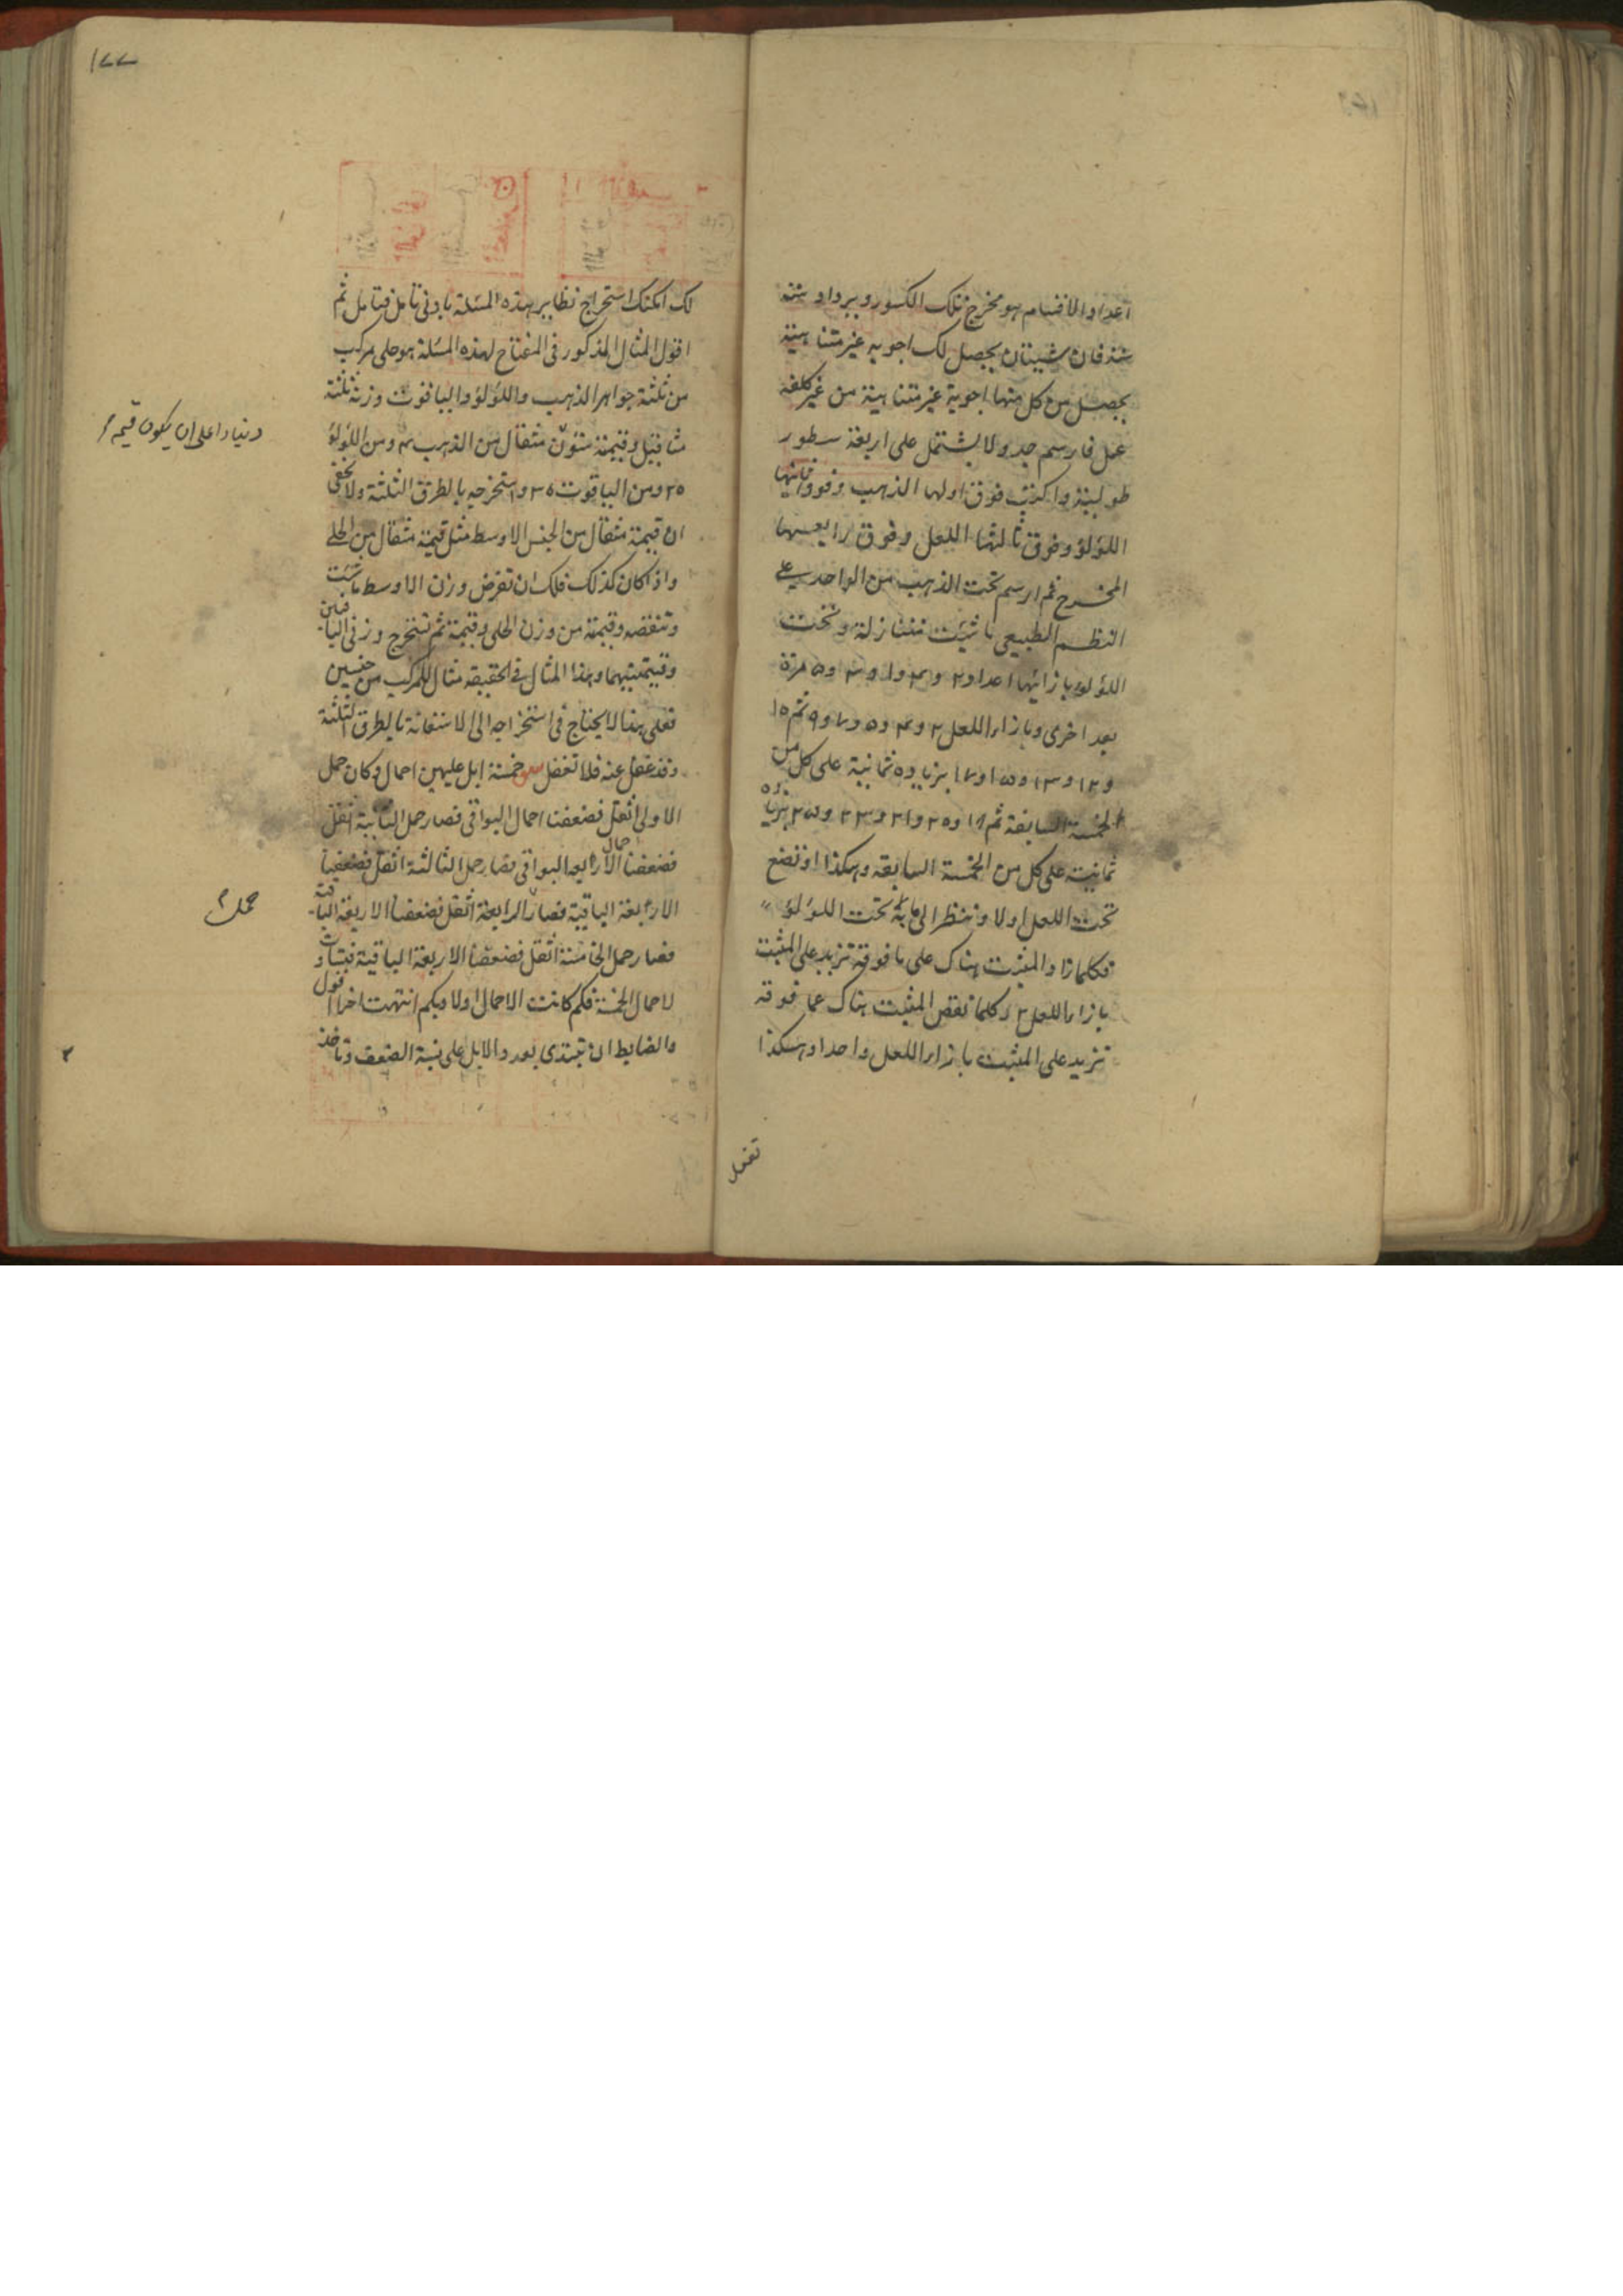 اعداد الاقسام هو مخرج تلك الكسور ويرداد ستة
ستة فان شيئان يحصل لك اجوبه غير متناهية
يحصل من كل منها اجوبة غير متناهية من غير كلفة
عمل فارسم جدولا يشتمل على اربعة سطور
طولية واكتب فوق اولها الذهب وفوق ثانيها
اللؤلؤ وفوق ثالثها اللعل وفوق رابعها
المخرج ثم ارسم تحت الذهب من الواحد على
النظم الطبيعى ما شئت متنازلة وتحت
اللؤلؤ بازائها اعداد ٢ و٣ و١ و٣ و٥ مرة
بعد اخرى وبازاء اللعل ٢ و٣ و٥ و٧ و٩ ثم ١٥
و١٢ و١٣ و١٥ و١٧ بزيادة ثمانية على كل من
الخمسة السابقة ثم ١٨ و٢٥ و٢١ و٢٣ و٢٥ بزيادة
ثمانية على كل من الخمسة السابقه وهكذا او تضع
تحت اللعل اولا وتنظر الى ما تحت اللؤلؤ
فكلما زاد المثبت هناك على ما فوقه تزيد على المثبت
بازاء اللعل ٢ وكلما نقص المثبت هناك عما فوقه
تزيد على المثبت بازاء اللعل واحدا وهكذا
تفعل
١٧٧
لك امكنك استخراج نظاير هذه المسئلة بادنى تامل فتامل ثم
اقول المثال المذكور فى المفتاح لهذه المسئلة هو حلى مركب
من ثلثة جواهر الذهب واللؤلؤ والياقوت وزنه ثلثة
مثاقيل وقيمته ستون مثقال من الذهب ٣ ومن اللؤلؤ
٢٥ ومن الياقوت ٣٥ واستخرجه بالطرق الثلثة ولا يخفى
ان قيمة مثقال من الجنس الاوسط مثل قيمة مثقال من الحلى
واذا كان كذلك فلك ان تفرض وزن الاوسط ما شئت
وتنقصه وقيمته من وزن الحلى وقيمته ثم تستخرج وزنى الباقين
وقيمتيهما وهذا المثال فى الحقيقه مثال للمركب من جنسين
فعلى هذا لا يحتاج فى استخراجه الى الاستعانة بالطرق الثلثة
وقد غفل عنه فلا تغفل خمسة ابل عليهن احمال وكان حمل
الاولى اثقل فضعفنا احمال البواقى فصار حمل الثانية اثقل
فضعفنا احمال الاربعه البواقى فصار حمل الثالثة اثقل فضعفنا
الاربعة الباقية فصار الرابعة اثقل فضعفنا الاربعة الباقية
فصار حمل الخامسة اثقل فضعفنا الاربعة الباقية فتساوت
الاحمال الخمسة فكم كانت الاحمال اولا وبكم انتهت اخرا اقول
والضابط ان تبتدى بعدد الابل على نسبة الضعف وتاخذ
دينارا على ان يكون قيمة
حمل
٢